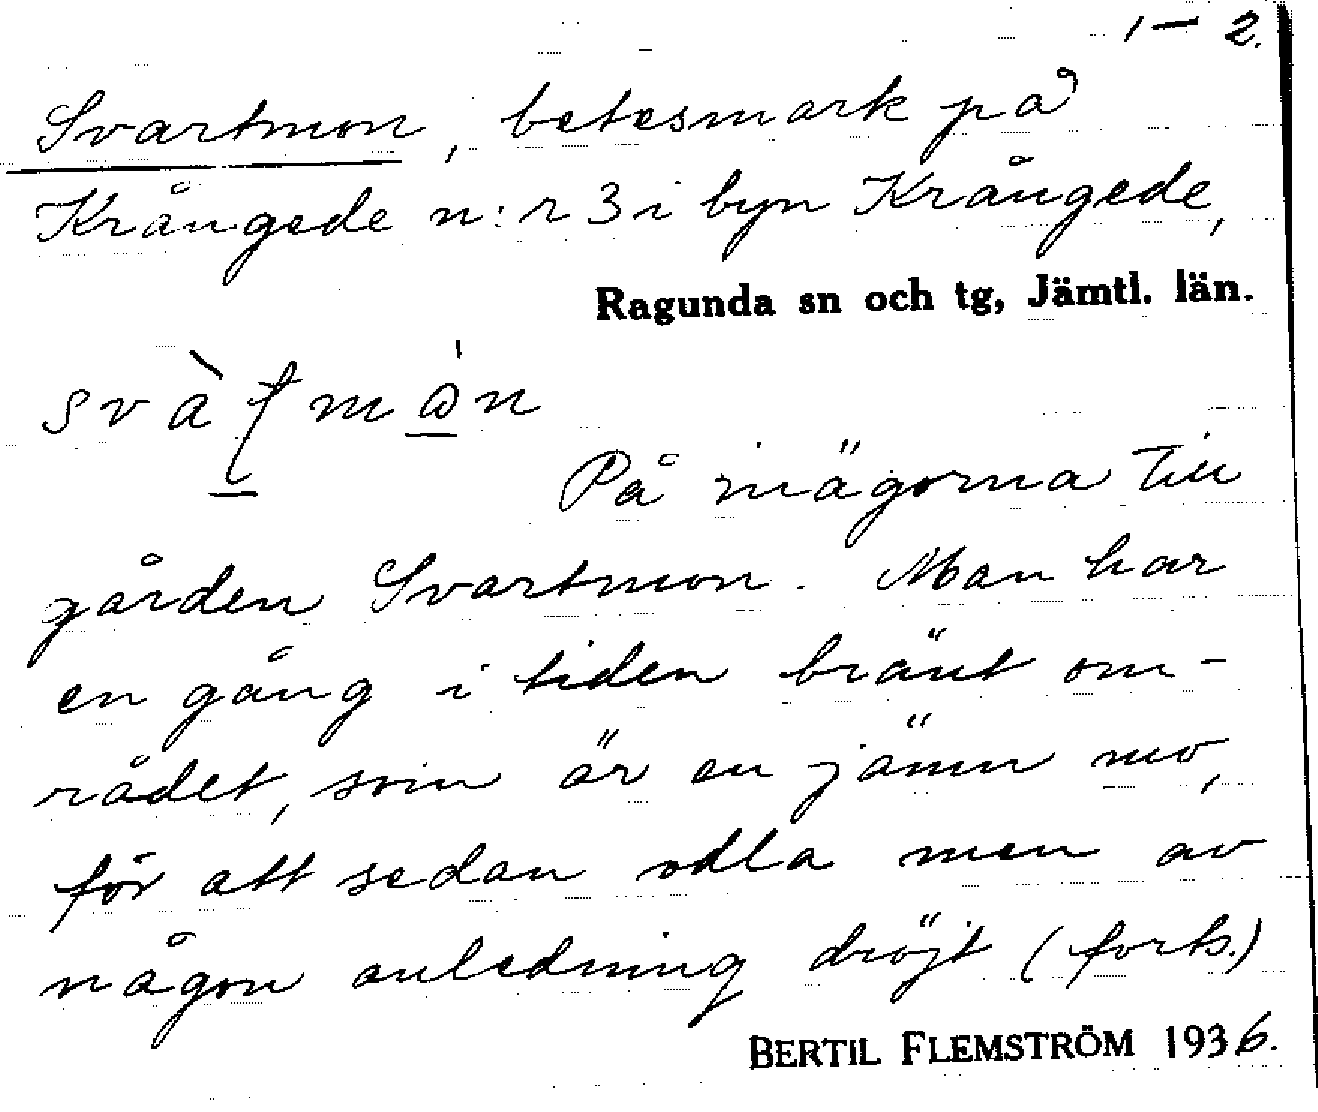 1 – 2.
Svartmon, betesmark på
Krångede n:r 3 i byn Krångede,
Ragunda sn och tg, Jämtl. län.
På mägorna till
gården Svartmon. Man har
en gång i tiden bränt om-
rådet, som är en jämn mo,
för att sedan odla men av
någon anledning dröjt (forts.)
BERTIL FLEMSTRÖM 1936.